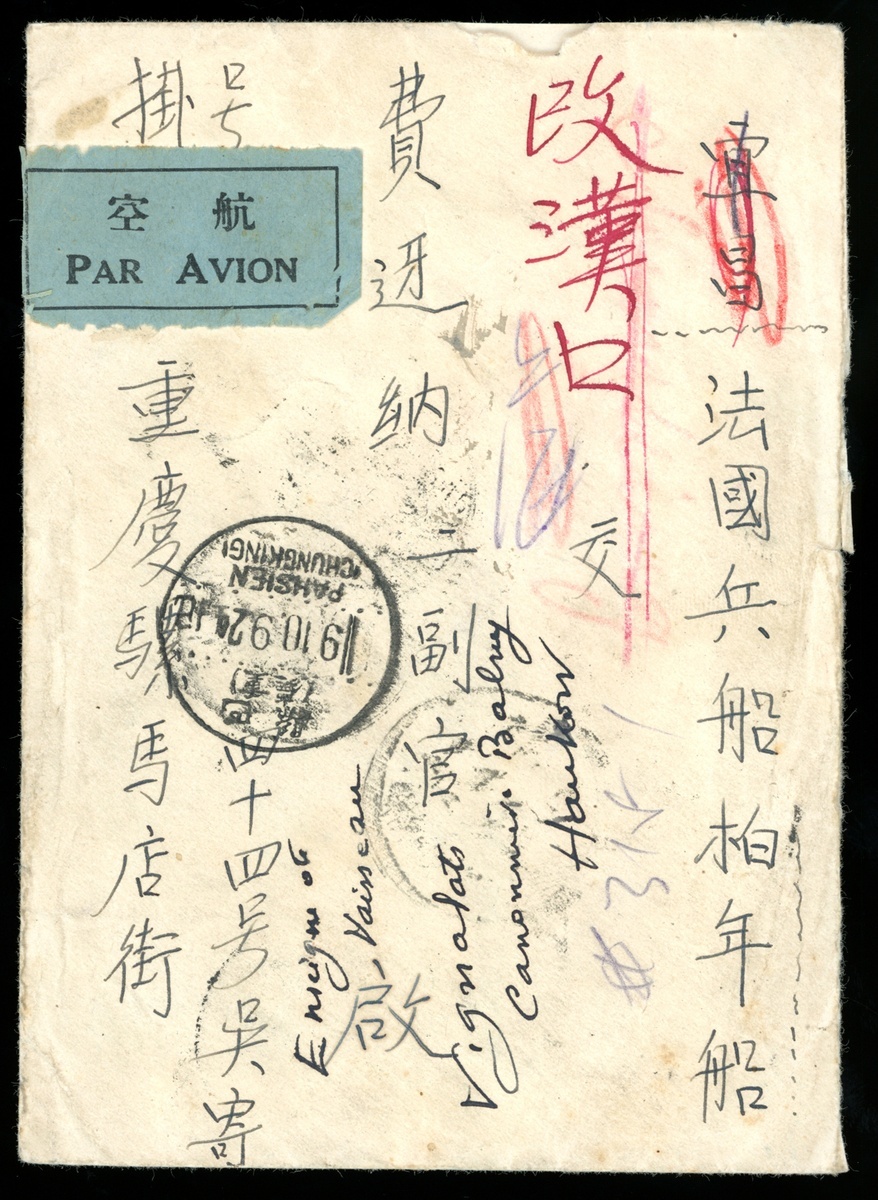 法國兵船柏年船
改漢口
交
費迓納二副官
啟
掛号
空航
PAR AVION
重慶騾馬店街
四十四号吳寄
PAHSIEN
(CHUNGKING)
巴
(慶重)
Enseigne de
Vaisseau
Vignolats
Canonnière Balny
Hankow